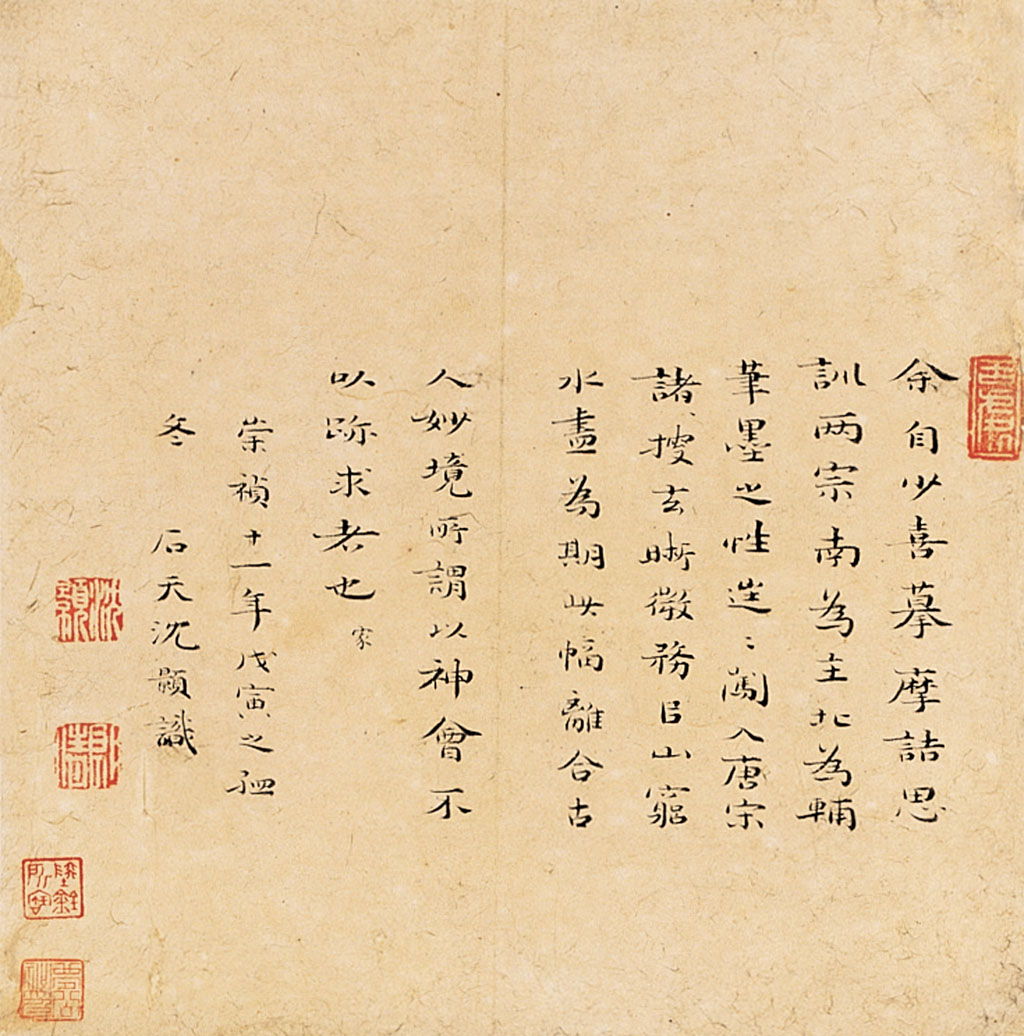 余自少喜摹摩詰思
訓两宗南為主北為輔
筆墨之性迬〻闖入唐宋
諸搜玄晰微務㠯山窮
水盡為期此幅離合古
人妙境所謂以神會不
以跡求者也 家
崇禎十一年戊寅之
冬 石天沈顥識
沈顥